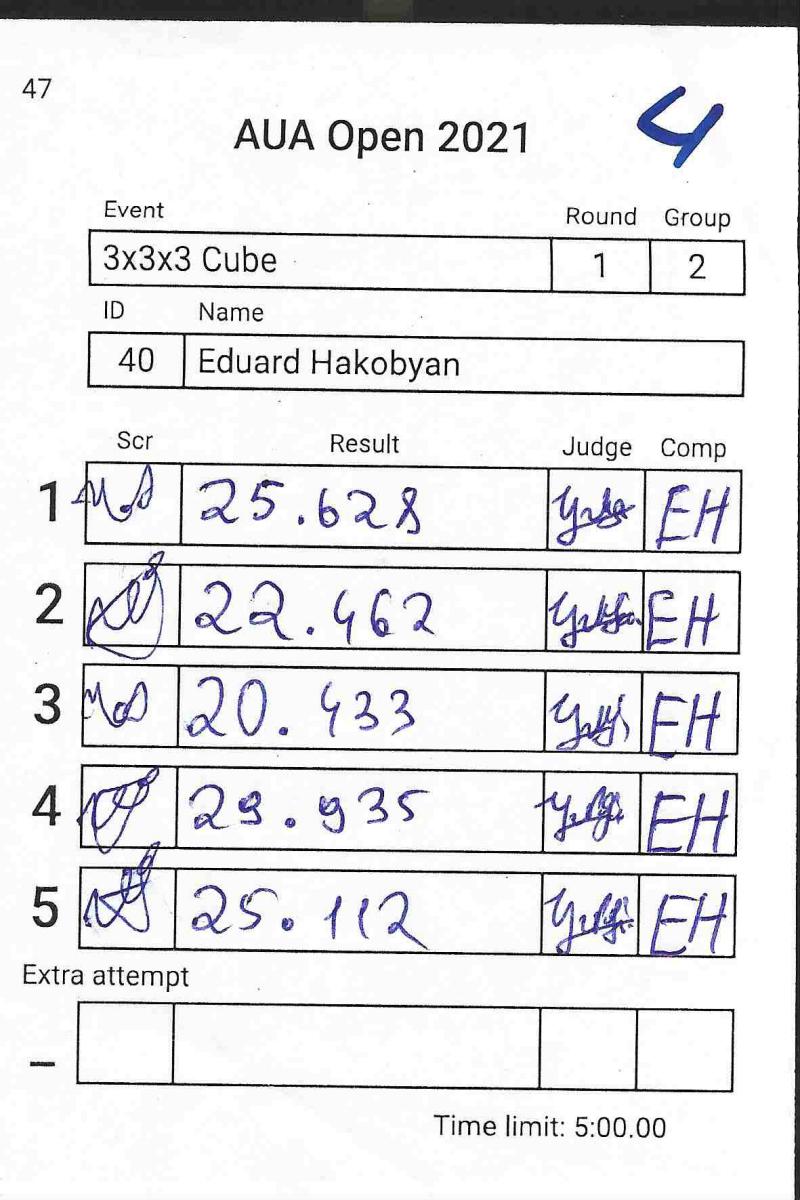 47
4
AUA Open 2021
Event Round Group
3x3x3 Cube 1 2
ID Name
40 Eduard Hakobyan
Scr Result Judge Comp
1 25.628 EH
2 22.462 EH
3 20.433 EH
4 29.935 EH
5 25.112 EH
Extra attempt
–
Time limit: 5:00.00